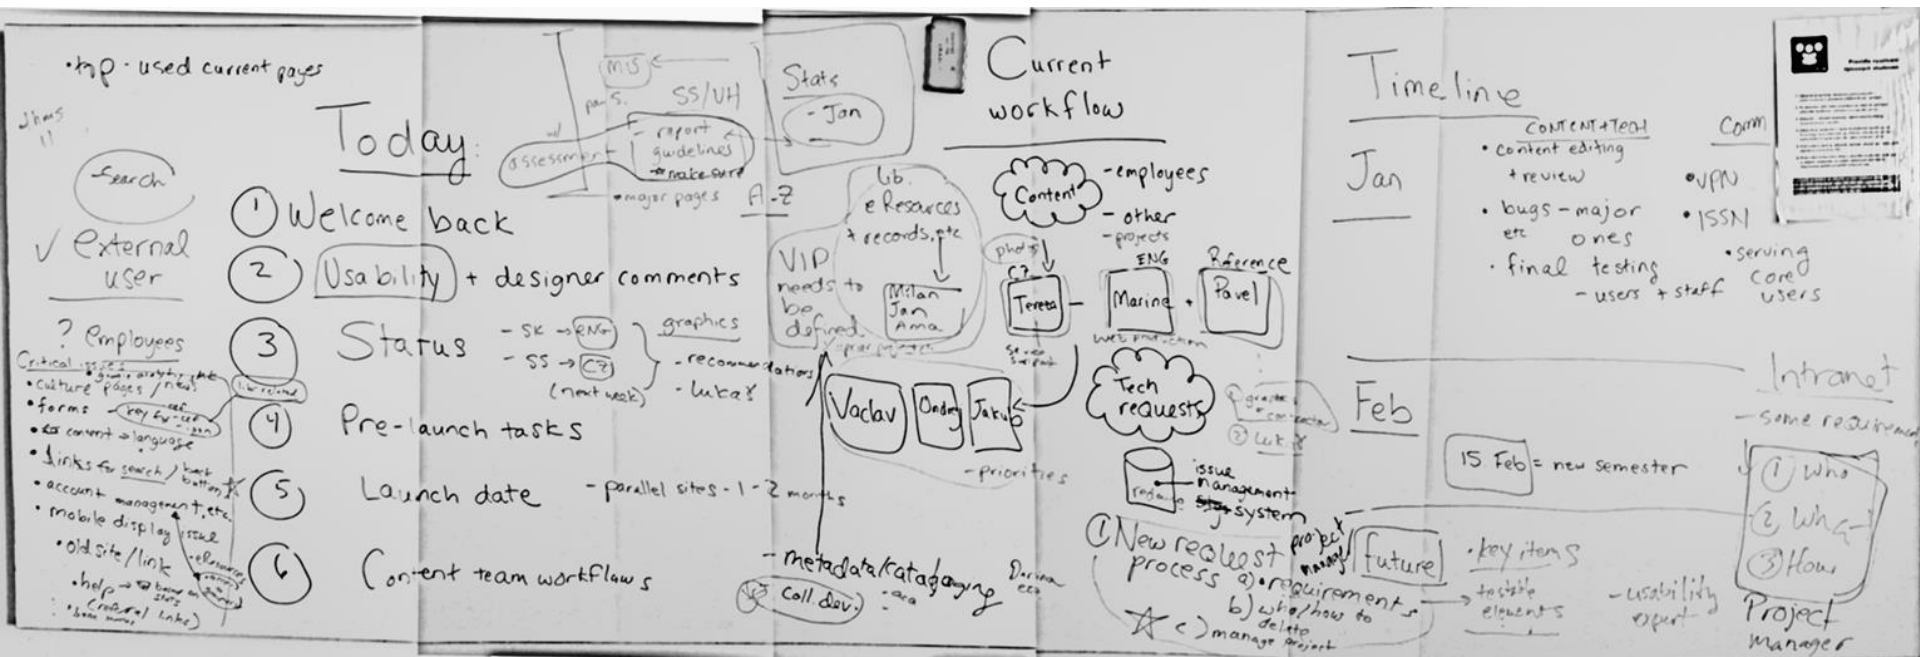 • top - used current pages
Search
✓ external
user
? employees
Critical issues
• culture pages / news
• forms
• content → language
• links for search / back
button
• account management, etc.
• mobile display issue
• old site/link
- eResources
• help →
(referral links)
Today:
① Welcome back
② Usability + designer comments
③ Status
- SK → ENG
- SS → CZ
(next week)
graphics
- recommendations
④ Pre-launch tasks
⑤ Launch date - parallel sites - 1-2 months
⑥ Content team workflows
MIS
SS/UH
assessment
- report
guidelines
make sure
• major pages
A-Z
Stats
- Jan
Lib.
eResources
+ records, etc
Milan
Jan
VIP
needs to
be
defined.
Vaclav
Jakub
- priorities
- metadata/
coll. dev.
Current
workflow
Content
- employees
- other
- projects
photos
CZ
Tereza
ENG
Marina
+
Reference
Pavel
Tech
requests
issue
management
system
① New request
process
a) requirements
b) who/how to
delete
c) manage project
project
manager
Timeline
Jan
CONTENT + TECH
• content editing
+ review
• bugs - major
etc ones
• final testing
- users + staff
Comm
• VPN
• ISSN
• serving
core
users
Feb
15. Feb = new semester
Intranet
- some requirement
① Who
② What
③ How
Project
manager
future
• key items
→ testable
elements
- usability
expert